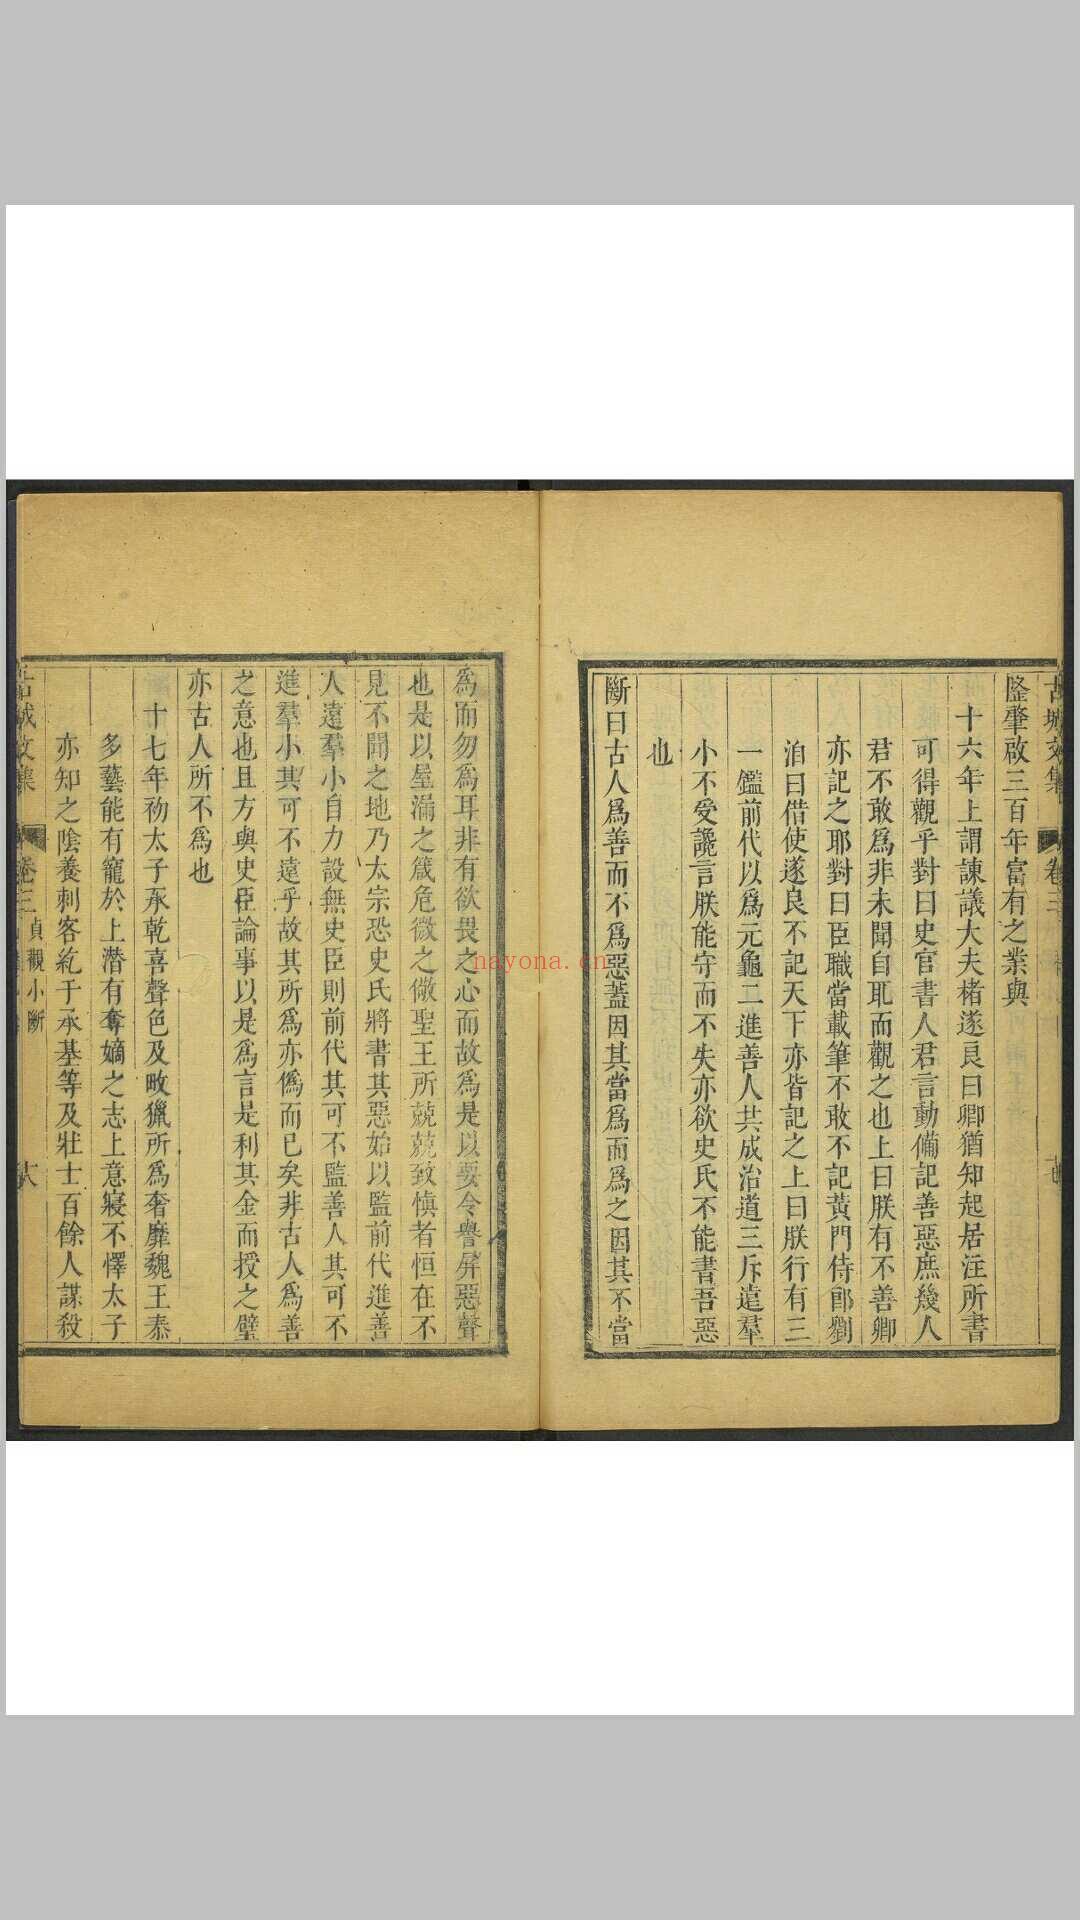 古城文集 卷三
隆肇啟三百年富有之業與
十六年上謂諫議大夫楮遂良曰卿猶知起居注所書
可得觀乎對曰史官書人君言動備記善惡庶幾人
君不敢爲非未聞自取而觀之也上曰朕有不善卿
亦記之耶對曰臣職當載筆不敢不記黃門侍郎劉
洎曰借使遂良不記天下亦皆記之上曰朕行有三
一鑑前代以爲元龜二進善人共成治道三斥遠羣
小不受讒言朕能守而不失亦欲史氏不能書吾惡
也
斷曰古人爲善而不爲惡蓋因其當爲而爲之因其不當
爲而勿爲耳非有欲畏之心而故爲是以要令譽屏惡聲
也是以屋漏之箴危微之儆聖王所兢兢致慎者恒在不
見不聞之地乃太宗恐史氏將書其惡始以監前代進善
人遠羣小自力設無史臣則前代其可不監善人其可不
進羣小其可不遠乎故其所爲亦僞而已矣非古人爲善
之意也且方與史臣論事以是爲言是利其金而授之璧
亦古人所不爲也
十七年初太子承乾喜聲色及畋獵所爲奢靡魏王泰
多藝能有寵於上潛有奪嫡之志上意寖不懌太子
亦知之陰養刺客紇于承基等及壯士百餘人謀殺
古城文集 卷三 貞觀小斷
nayona.cn